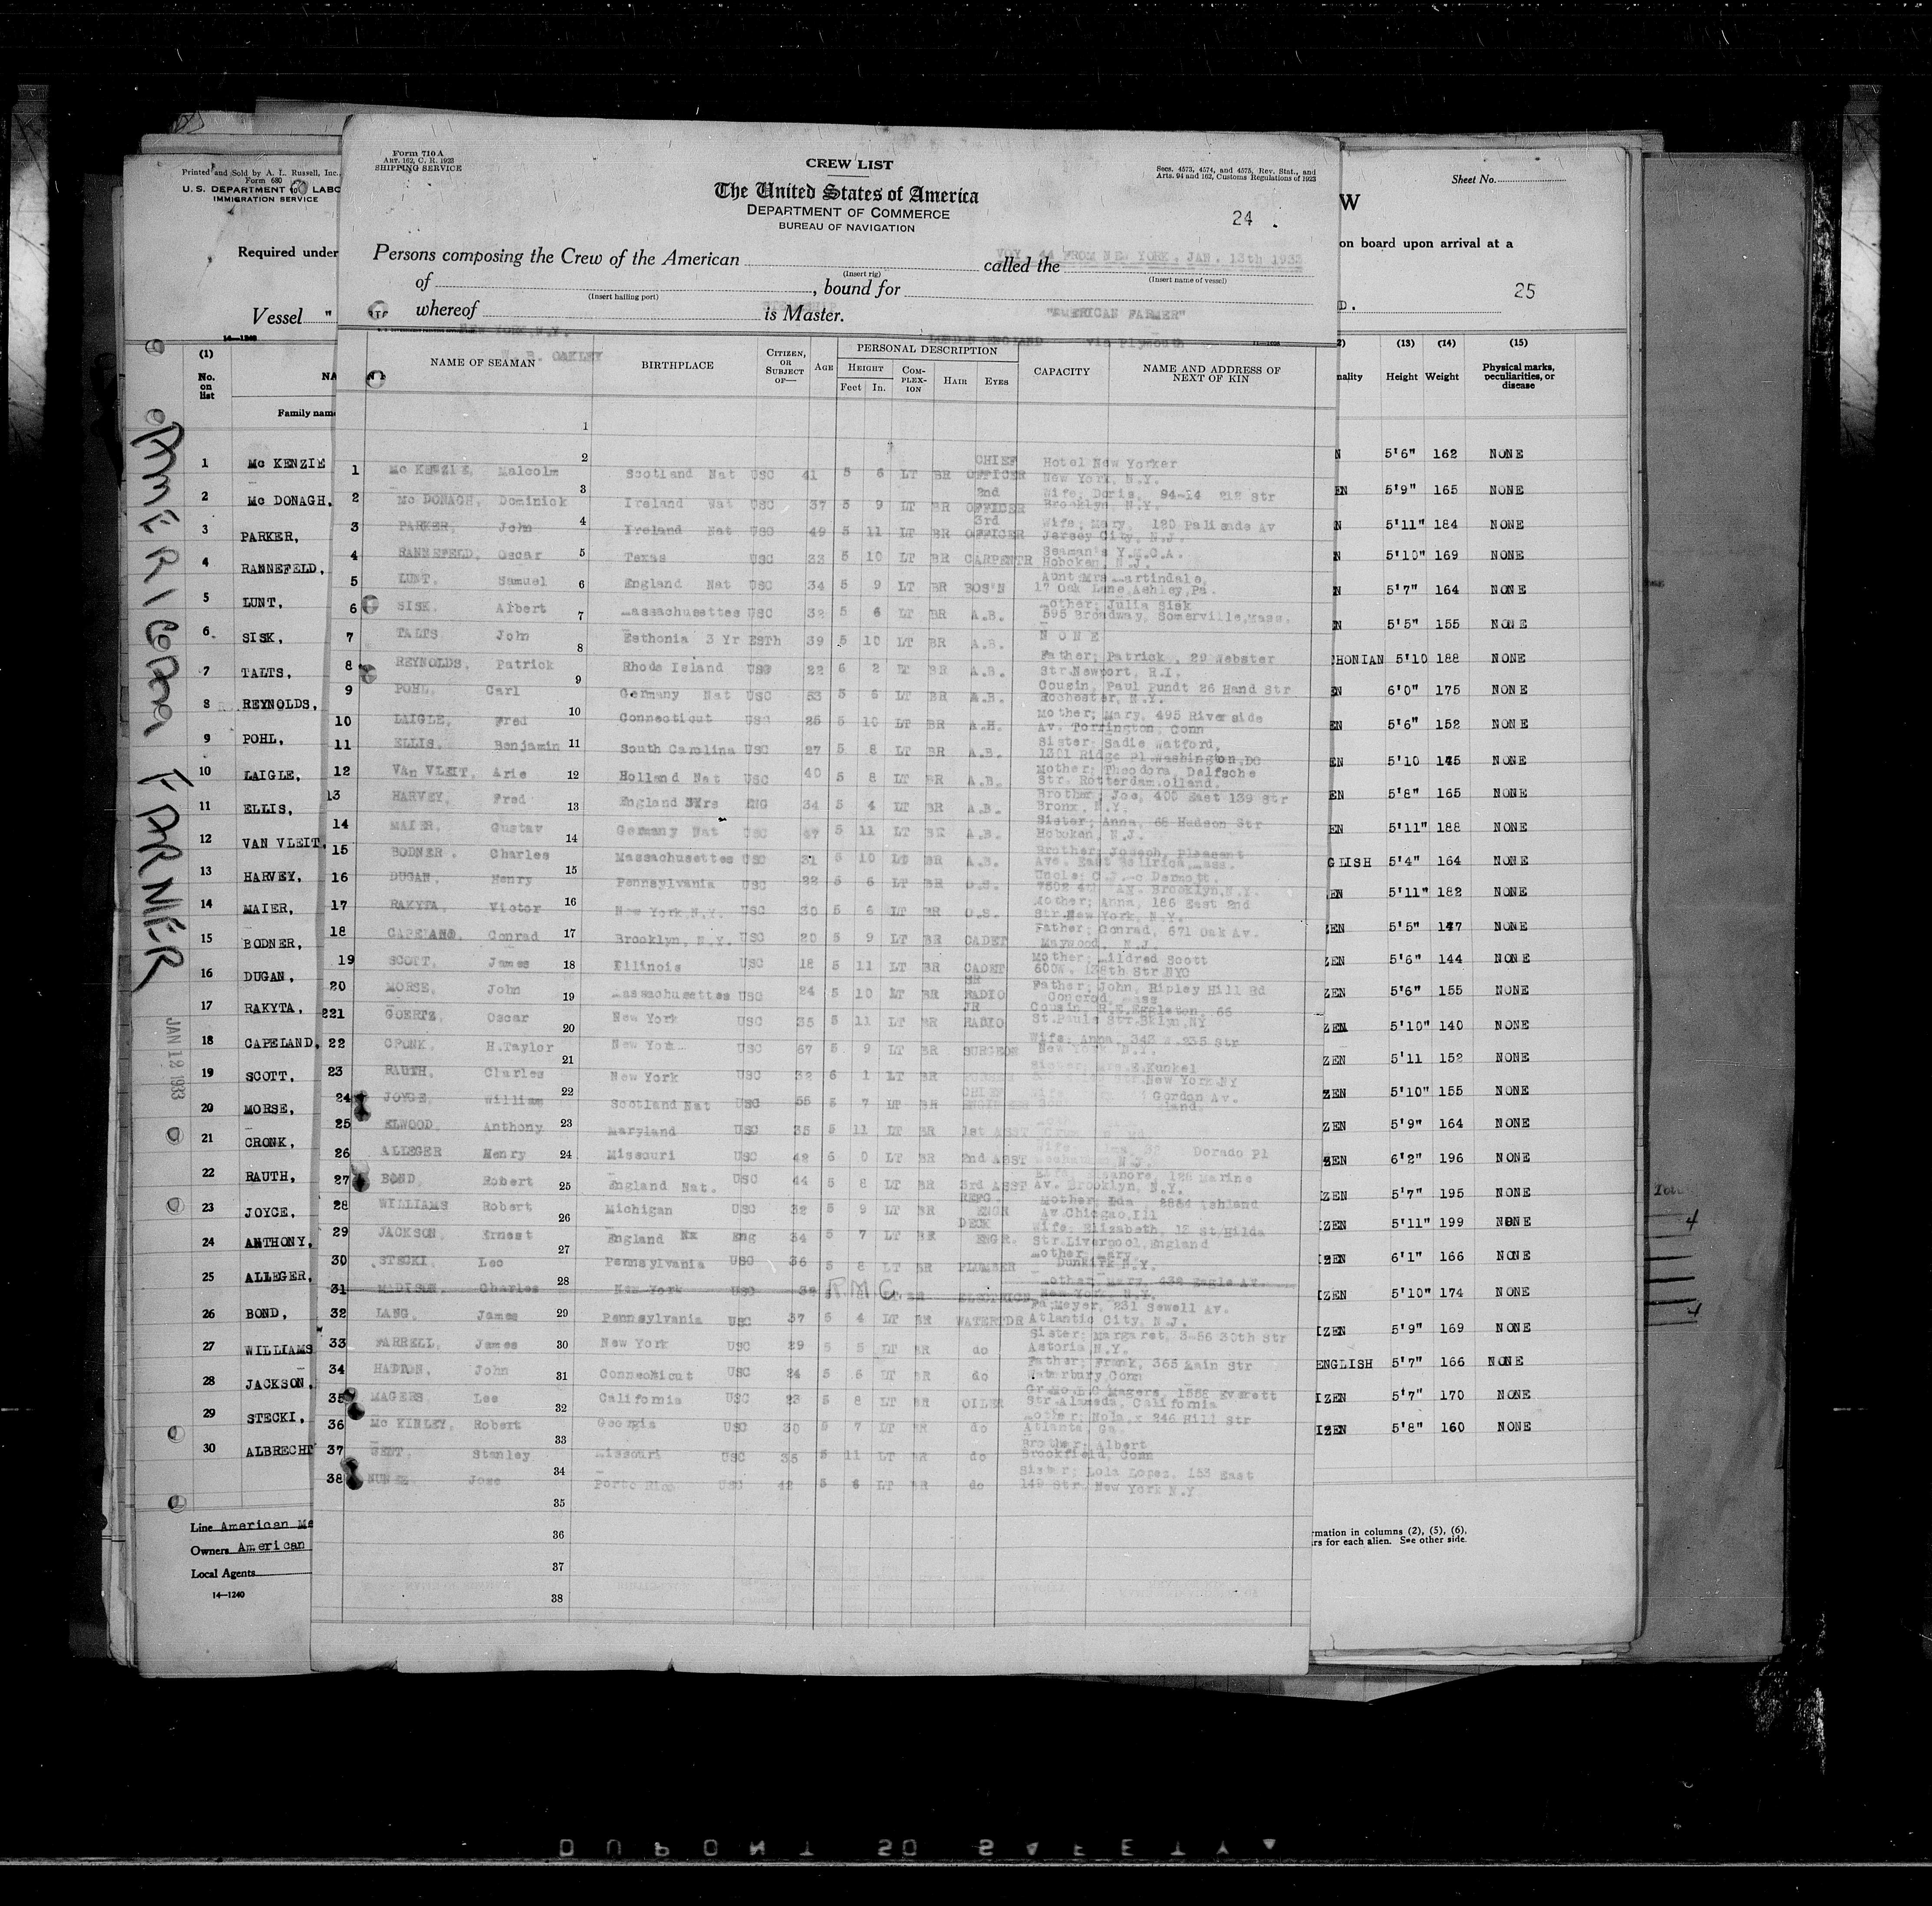 Form 710 A
ART. 162, C. R. 1923
SHIPPING SERVICE
CREW LIST
The United States of America
DEPARTMENT OF COMMERCE
BUREAU OF NAVIGATION
Secs. 4573, 4574, and 4575, Rev. Stat., and
Arts. 94 and 162, Customs Regulations of 1923
24
VOY. 44 FROM NEW YORK, JAN. 13th 1933
Persons composing the Crew of the American called the
(Insert rig) (Insert name of vessel)
of , bound for
(Insert hailing port)
STEAMSHIP "AMERICAN FARMER"
whereof is Master.
NEW YORK, N.Y. LONDON, ENGLAND via Plymouth
OAKLEY
NAME OF SEAMAN BIRTHPLACE CITIZEN, OR SUBJECT OF— AGE PERSONAL DESCRIPTION CAPACITY NAME AND ADDRESS OF NEXT OF KIN
HEIGHT COMPLEXION HAIR EYES
Feet In.
1 Mc KENZIE, Malcolm Scotland Nat USC 41 5 6 LT BR CHIEF OFFICER Hotel New Yorker New York, N.Y.
2 Mc DONAGH, Dominick Ireland Nat USC 37 5 9 LT BR 2nd OFFICER Wife, Doris, 94-14 212 Str Brooklyn, N.Y.
3 PARKER, John Ireland Nat USC 49 5 11 LT BR 3rd OFFICER Wife; Mary, 180 Palisade Av Jersey City, N.J.
4 RANNEFELD, Oscar Texas USC 33 5 10 LT BR CARPENTR Seaman's Y.M.C.A. Hoboken, N.J.
5 LUNT, Samuel England Nat USC 34 5 9 LT BR BOS'N Aunt Mrs Martindale, 17 Oak Lane, Ashley, Pa.
6 SISK, Albert Massachusettes USC 32 5 6 LT BR A.B. Mother; Julia Sisk 595 Broadway, Somerville, Mass.
7 TALTS John Esthonia 3 Yr ESTh 39 5 10 LT BR A.B. N O N E
8 REYNOLDS, Patrick Rhode Island USC 22 6 2 LT BR A.B. Father; Patrick, 29 Webster Str Newport, R.I.
9 POHL, Carl Germany Nat USC 53 5 6 LT BR A.B. Cousin, Paul Pundt 26 Hand Str Rochester, N.Y.
10 LAIGLE, Fred Connecticut USC 25 5 10 LT BR A.B. Mother; Mary, 495 Riverside Av. Torrington, Conn
11 ELLIS, Benjamin South Carolina USC 27 5 8 LT BR A.B. Sister; Sadie Watford, 1301 Ridge Pl Washington, DC
12 VAn VLEIT, Arie Holland Nat USC 40 5 8 LT BR A.B. Mother; Theodora, Delfsche Str. Rotterdam
13 HARVEY, Fred England 3Yrs ENG 34 5 4 LT BR A.B. Brother; Joe, 400 East 139 Str Bronx, N.Y.
14 MAIER, Gustav Germany Nat USC 47 5 11 LT BR A.B. Sister; Anna, 68 Hudson Str Hoboken, N.J.
15 BODNER, Charles Massachusettes USC 31 5 10 LT BR A.B. Brother; Joseph, Pleasant Ave. East
16 DUGAN, Henry Pennsylvania USC 22 5 6 LT BR O.S. Uncle; C.J. Mc Dermott, Av. Brooklyn, N.Y.
17 RAKYTA, Victor New York N.Y. USC 30 5 6 LT BR O.S. Mother; Anna, 186 East 2nd Str New York, N.Y.
18 CAPELAND, Conrad Brooklyn, N.Y. USC 20 5 9 LT BR CADET Father; Conrad, 671 Oak Av. Maywood, N.J.
19 SCOTT, James Illinois USC 18 5 11 LT BR CADET Mother; Mildred Scott 600W. 138th Str NYC
20 MORSE, John Massachusettes USC 24 5 10 LT BR SR RADIO Father; John, Ripley Hill Rd Concrod, Mass
221 GOERTZ, Oscar New York USC 35 5 11 LT BR JR RADIO Cousin H.E.Eggleton, 66 St. Pauls Str. Bklyn, NY
22 CRONK, H.Taylor New York USC 67 5 9 LT BR SURGEON Wife; Anna, 343 W. 235 Str New York, N.Y.
23 RAUTH, Charles New York USC 32 6 1 LT BR Sister, Mrs E.Kunkel Str. New York NY
24 JOYCE, William Scotland Nat USC 55 5 7 LT BR CHIEF Gordon Av.
25 ELWOOD, Anthony Maryland USC 35 5 11 LT BR 1st ASST
26 ALLEGER Henry Missouri USC 42 6 0 LT BR 2nd ASST Dorado Pl
27 BOND, Robert England Nat. USC 44 5 8 LT BR 3rd ASST 128 Marine Av. Brooklyn, N.Y.
28 WILLIAMS Robert Michigan USC 32 5 9 LT BR REFG. ENGR Mother; Ida 8884 Ashland Av Chicgao, Ill
29 JACKSON, Ernest England Nx Eng 34 5 7 LT BR DECK ENGR. Wife, Elizabeth, 12 St Hilda Str. Liverpool, England
30 STECKI, Leo Pennsylvania USC 36 5 8 LT BR PLUMBER Mother; Mary, Dunkirk N.Y.
31 MADISON, Charles New York USC R.M.C. ELECTRICN Mother, Mary, 432 Eagle Av. New York, N.Y.
32 LANG, James Pennsylvania USC 37 5 4 LT BR WATERTDR Fa, Meyer, 231 Sewell Av. Atlantic City, N.J.
33 FARRELL, James New York USC 29 5 5 LT BR do Sister; Margaret, 3-56 30th Str Astoria, N.Y.
34 John Connecticut USC 24 5 6 LT BR do Father; Frank, 365 Main Str Waterbury, Conn
35 MAGERS, Lee California USC 23 5 8 LT BR OILER Gr Mo L C Magers, 1558 Everett Str Alameda, California
36 Mc KINLEY, Robert Georgia USC 30 5 7 LT BR do Mother; Nola, x 246 Hill Str Atlanta, Ga.
37 Stanley Missouri USC 35 5 11 LT BR do Brother; Albert Brookfield, Conn
38 NUNEZ, Jose Porto Rico USC 42 5 6 LT BR do Sister; Lola Lopez, 153 East 149 Str. New York N.Y
1
2
3
4
5
6
7
8
9
10
11
12
13
14
15
16
17
18
19
20
21
22
23
24
25
26
27
28
29
30
31
32
33
34
35
36
37
38
Printed and Sold by A. L. Russell, Inc.,
Form 680
U. S. DEPARTMENT
IMMIGRATION SERVICE
Required under
Vessel "
14—1240
(1)
No. on list
Family name
1 Mc KENZIE
2 Mc DONAGH,
3 PARKER,
4 RANNEFELD,
5 LUNT,
6 SISK,
7 TALTS,
8 REYNOLDS,
9 POHL,
10 LAIGLE,
11 ELLIS,
12 VAN VLEIT,
13 HARVEY,
14 MAIER,
15 BODNER,
16 DUGAN,
17 RAKYTA,
18 CAPELAND,
19 SCOTT,
20 MORSE,
21 CRONK,
22 RAUTH,
23 JOYCE,
24 ANTHONY,
25 ALLEGER,
26 BOND,
27 WILLIAMS
28 JACKSON,
29 STECKI,
30 ALBRECHT
Line American Me
Owners American
Local Agents
14—1240
AMERICAN FARMER
JAN 12 1933
Sheet No.
W
on board upon arrival at a
25
D.
(13) (14) (15)
nality Height Weight Physical marks, peculiarities, or disease
N 5'6" 162 NONE
EN 5'9" 165 NONE
N 5'11" 184 NONE
N 5'10" 169 NONE
N 5'7" 164 NONE
N 5'5" 155 NONE
THONIAN 5'10 188 NONE
EN 6'0" 175 NONE
EN 5'6" 152 NONE
EN 5'10 145 NONE
EN 5'8" 165 NONE
EN 5'11" 188 NONE
GLISH 5'4" 164 NONE
EN 5'11" 182 NONE
ZEN 5'5" 147 NONE
ZEN 5'6" 144 NONE
ZEN 5'6" 155 NONE
ZEN 5'10" 140 NONE
ZEN 5'11 152 NONE
ZEN 5'10" 155 NONE
ZEN 5'9" 164 NONE
ZEN 6'2" 196 NONE
IZEN 5'7" 195 NONE
IZEN 5'11" 199 NONE
IZEN 6'1" 166 NONE
IZEN 5'10" 174 NONE
IZEN 5'9" 169 NONE
ENGLISH 5'7" 166 NONE
IZEN 5'7" 170 NONE
IZEN 5'8" 160 NONE
rmation in columns (2), (5), (6),
rs for each alien. See other side.
4
4
DUPONT 50 SAFETY